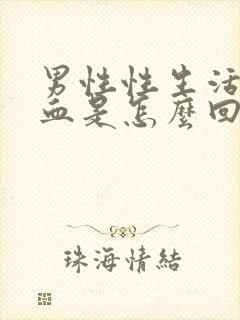 男性性生活
血是怎麼回
珠海情結